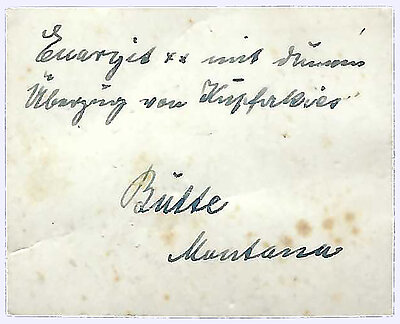 Enargit xx mit dünnem
Überzug von Kupferkies
Butte
Montana